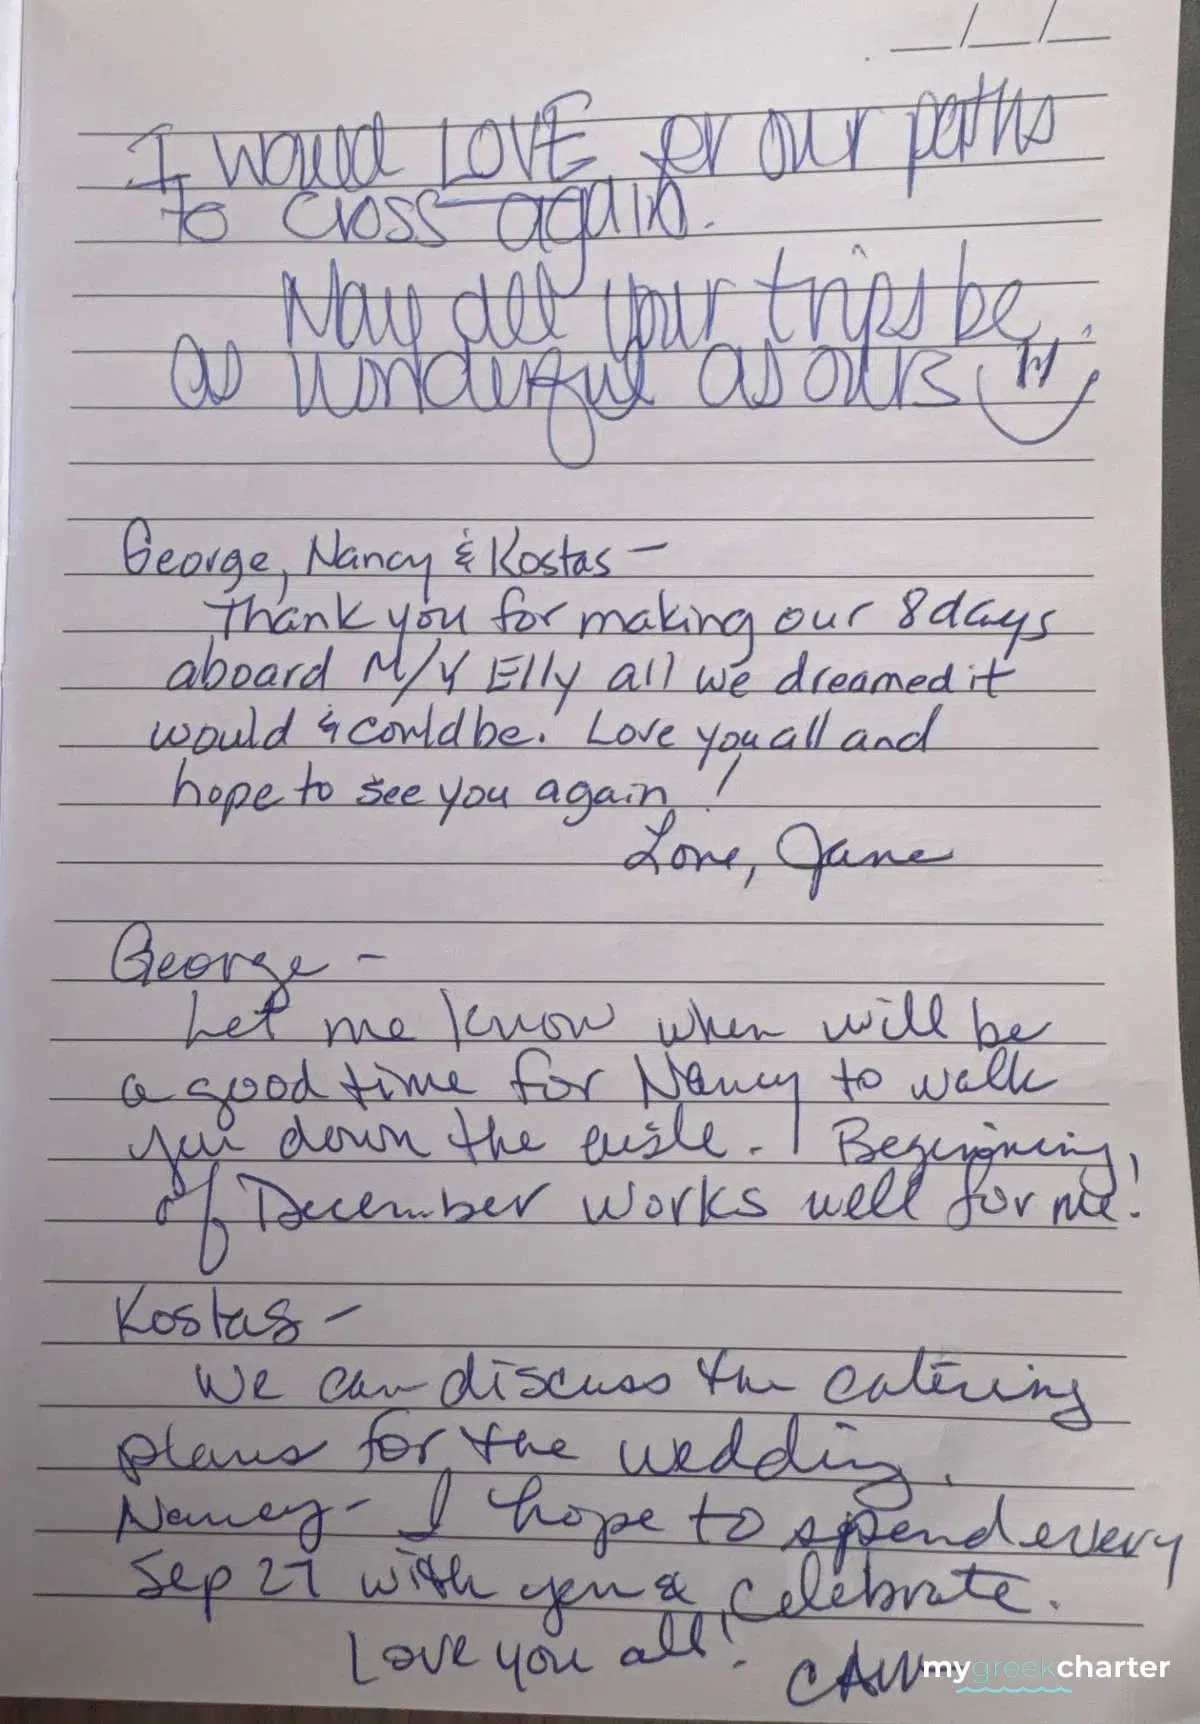 __/__/__
I would LOVE for our paths
to cross again.
May all your trips be
as wonderful as ours
George, Nancy & Kostas —
Thank you for making our 8 days
aboard M/Y Elly all we dreamed it
would & could be. Love you all and
hope to see you again!
Love, Jane
George —
Let me know when will be
a good time for Nancy to walk
you down the aisle. Beginning
of December works well for me!
Kostas —
We can discuss the catering
plans for the wedding.
Nancy - I hope to spend every
Sep 27 with you & celebrate.
Love you all!
mygreekcharter